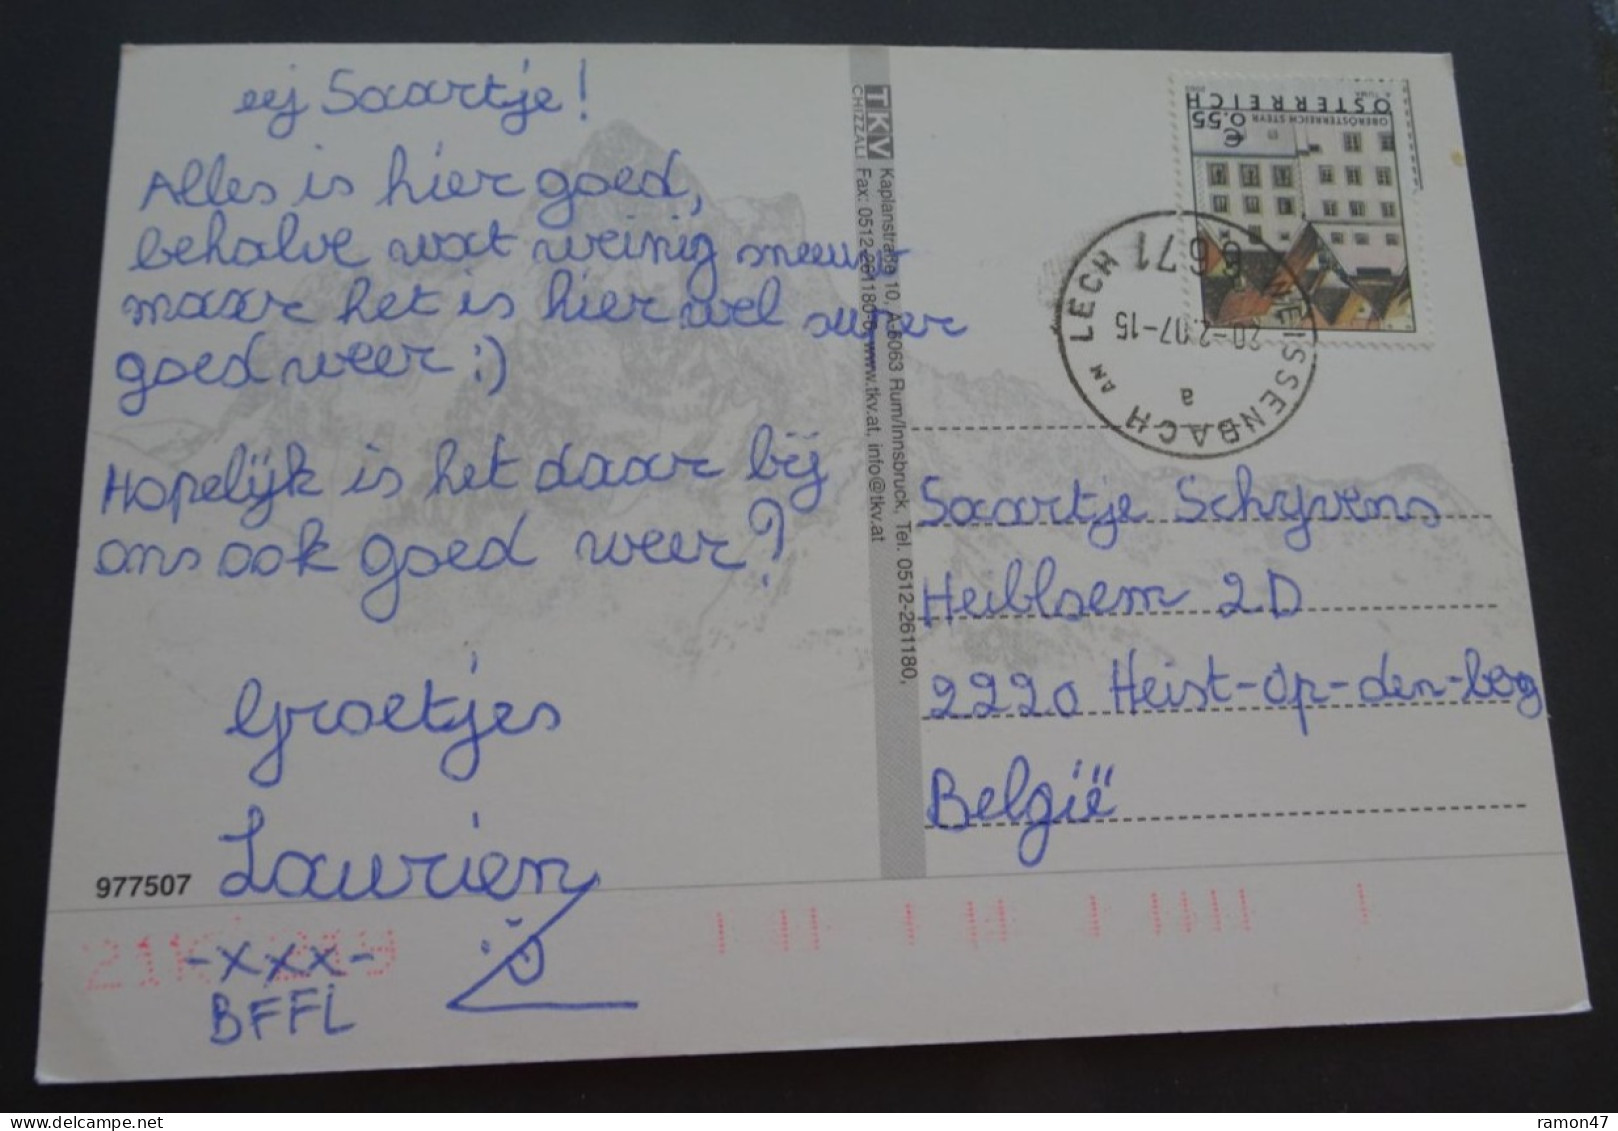 eej Saartje!
Alles is hier goed,
behalve wat weinig sneeuw
maar het is hier wel super
goed weer :)
Hopelijk is het daar bij
ons ook goed weer?
Groetjes
Laurien
-xxx-
BFFL
977507
TKV
CHIZZALI
Kaplanstraße 10, A-6063 Rum/Innsbruck, Tel. 0512-261180,
Fax: 0512-261180-6, www.tkv.at, info@tkv.at
ÖSTERREICH
A. TUMA
OBERÖSTERREICH STEYR
€ 0.55
6671 WEISSENBACH AM LECH
20-2.07-15
a
Saartje Schyvens
Heibloem 2D
2220 Heist-op-den-berg
België
ramon47